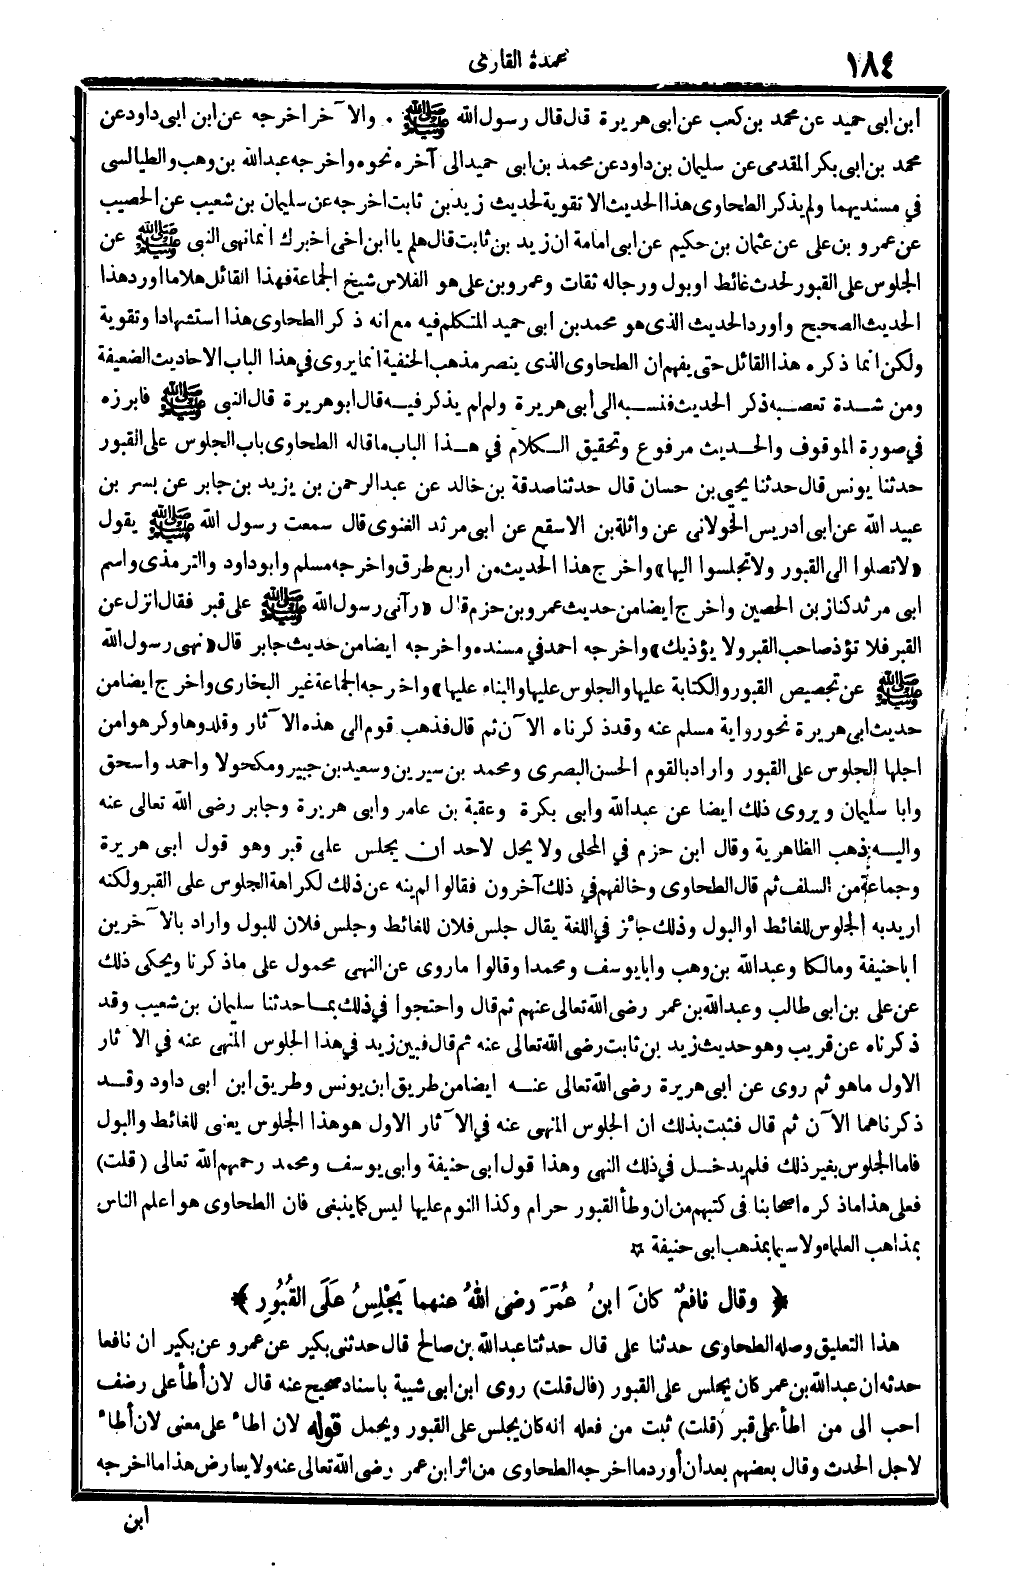 ١٨٤
عمدة القارى
ابن ابى حميد عن محمد بن كعب عن ابى هريرة قال قال رسول الله ﷺ . والآخر اخرجه عن ابن ابى داود عن
محمد بن ابى بكر المقدمى عن سليمان بن داود عن محمد بن ابى حميد الى آخره نحوه واخرجه عبدالله بن وهب والطيالسى
في مسنديهما ولم يذكر الطحاوى هذا الحديث الا تقوية لحديث زيد بن ثابت اخرجه عن سليمان بن شعيب عن الخصيب
عن عمرو بن على عن عثمان بن حكيم عن ابى امامة ان زيد بن ثابت قال هلم يا ابن اخى اخبرك انما نهى النبى ﷺ عن
الجلوس على القبور لحدث غائط او بول ورجاله ثقات وعمرو بن على هو الفلاس شيخ الجماعة فهذا القائل هلا ما اورد هذا
الحديث الصحيح واورد الحديث الذى هو محمد بن ابى حميد المتكلم فيه مع انه ذكر الطحاوى هذا استشهادا وتقوية
ولكن انما ذكره هذا القائل حتى يفهم ان الطحاوى الذى ينصر مذهب الحنفية انما يروى في هذا الباب الاحاديث الضعيفة
ومن شدة تعصبه ذكر الحديث فنسبه الى أبى هريرة ولم لم يذكر فيه قال ابو هريرة قال النبى ﷺ فابرزه
في صورة الموقوف والحديث مرفوع وتحقيق الكلام في هذا الباب ما قاله الطحاوى باب الجلوس على القبور
حدثنا يونس قال حدثنا يحيى بن حسان قال حدثنا صدقة بن خالد عن عبدالرحمن بن يزيد بن جابر عن بسر بن
عبيد الله عن ابى ادريس الخولانى عن واثلة بن الاسقع عن ابى مرثد الغنوى قال سمعت رسول الله ﷺ يقول
«لا تصلوا الى القبور ولا تجلسوا اليها» واخرج هذا الحديث من اربع طرق واخرجه مسلم وابو داود والترمذى واسم
ابى مرثد كناز بن الحصين واخرج ايضا من حديث عمرو بن حزم قال «رآنى رسول الله ﷺ على قبر فقال انزل عن
القبر فلا تؤذ صاحب القبر ولا يؤذيك» واخرجه احمد في مسنده واخرجه ايضا من حديث جابر قال «نهى رسول الله
ﷺ عن تجصيص القبور والكتابة عليها والجلوس عليها والبناء عليها» واخرجه الجماعة غير البخارى واخرج ايضا من
حديث ابى هريرة نحو رواية مسلم عنه وقد ذكرناه الآن ثم قال فذهب قوم الى هذه الآثار وقلدوها وكرهوا من
اجلها الجلوس على القبور واراد بالقوم الحسن البصرى ومحمد بن سيرين وسعيد بن جبير ومكحولا واحمد واسحق
وابا سليمان ويروى ذلك ايضا عن عبدالله وابى بكرة وعقبة بن عامر وابى هريرة وجابر رضى الله تعالى عنه
واليه ذهب الظاهرية وقال ابن حزم في المحلى ولا يحل لاحد ان يجلس على قبر وهو قول ابى هريرة
وجماعة من السلف ثم قال الطحاوى وخالفهم في ذلك آخرون فقالوا لم ينه عن ذلك لكراهة الجلوس على القبر ولكنه
اريد به الجلوس للغائط او البول وذلك جائز في اللغة يقال جلس فلان للغائط وجلس فلان للبول واراد بالآخرين
ابا حنيفة ومالكا وعبدالله بن وهب وابا يوسف ومحمدا وقالوا ما روى عن النهى محمول على ما ذكرنا ويحكى ذلك
عن على بن ابى طالب وعبدالله بن عمر رضى الله تعالى عنهم ثم قال واحتجوا في ذلك بما حدثنا سليمان بن شعيب وقد
ذكرناه عن قريب وهو حديث زيد بن ثابت رضى الله تعالى عنه ثم قال فبين زيد في هذا الجلوس المنهى عنه في الآثار
الاول ما هو ثم روى عن ابى هريرة رضى الله تعالى عنه ايضا من طريق ابن يونس وطريق ابن ابى داود وقد
ذكرناهما الآن ثم قال فثبت بذلك ان الجلوس المنهى عنه في الآثار الاول هو هذا الجلوس يعنى للغائط والبول
فاما الجلوس بغير ذلك فلم يدخل في ذلك النهى وهذا قول ابى حنيفة وابى يوسف ومحمد رحمهم الله تعالى (قلت)
فعلى هذا ما ذكره اصحابنا فى كتبهم من ان وطأ القبور حرام وكذا النوم عليها ليس كما ينبغى فان الطحاوى هو اعلم الناس
بمذاهب العلماء ولا سيما بمذهب ابى حنيفة ✡
﴿ وقال نافعٌ كانَ ابنُ عُمَرَ رضى اللهُ عنهما يَجْلِسُ عَلَى القُبُورِ ﴾
هذا التعليق وصله الطحاوى حدثنا على قال حدثنا عبدالله بن صالح قال حدثنى بكير عن عمرو عن بكير ان نافعا
حدثه ان عبدالله بن عمر كان يجلس على القبور (فان قلت) روى ابن ابى شيبة باسناد صحيح عنه قال لان أطأ على رضف
احب الى من اطأ على قبر (قلت) ثبت من فعله انه كان يجلس على القبور ويحمل قوله لان اطاء على معنى لان أطاء
لاجل الحدث وقال بعضهم بعد أن أورد ما اخرجه الطحاوى من اثر ابن عمر رضى الله تعالى عنه ولا يعارض هذا ما اخرجه
ابن